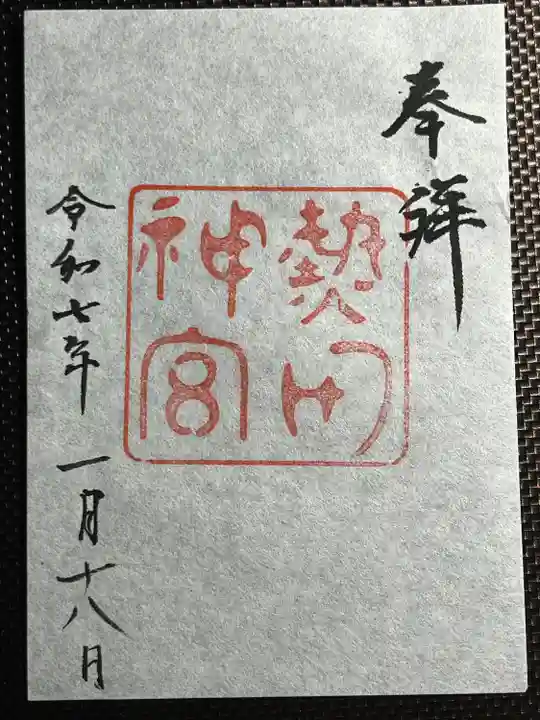 奉拝
熱田
神宮
令和七年 一月十八日